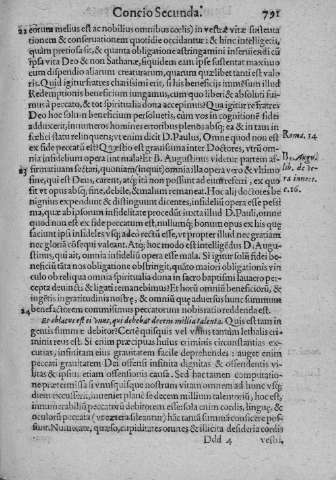 Concio Secunda. 791
22 eorum melius est ac nobilius omnibus cœlis) in vestræ vitæ sustenta
tionem & conseruationem quotidie occidantur: & hinc intelligetis,
quàm preciosa sit, & quanta obligatione astringamini inseruiēdi cū
ipsa vita Deo & non Sathanæ, siquidem eam ipse sustentat maximo
cum dispendio aliarum creaturarum, quarum quælibet tanti est valo
ris. Quid igitur fratres charissimi erit, si his beneficijs immēsum illud
Redemptionis beneficium iungamus, cum quo liberi & absoluti su-
mus à peccato, & tot spiritualia dona accepimus? Qua igitur re fratres
Deo hoc solum beneficium persoluetis, cùm vos in cognitionē fidei
adduxerit, innumeros homines erroribus plenos absq; ea & in tam in
fœlici statu relinquens; vt enim dicit D. Paulus, Omne quod non est
ex fide peccatū est? Quæstio est grauissima inter Doctores, vtrū om-
nia infidelium opera sint mala? Et B. Augustinus videtur partem af-
23 firmatiuam sectari, quoniam (inquit) omnia illa opera vero & vltimo
fine, qui est Deus, carent, atq; ità non possunt ad eum referri, ex quo
fit vt opus absq; fine, debile, & malum remaneat. Hoc alij doctores be
nignius expendunt & distinguunt dicentes, infidelis opera esse pessi
ma, quæ ab ipsorum infidelitate procedūt iuxta illud D. Pauli, omne
quod non est ex fide peccatum est, nullumq; bonum opus ex his quæ
faciunt ipsi infideles vsq; adeò rectū esse, vt propter illud nec gratiam
nec gloriā cōsequi valeant. Atq; hoc modo est intelligēdus D. Augu-
stinus, qui ait, omnia infidelium opera esse mala. Si igitur solū fidei be-
neficiū tātā nos obligatione obstringit, quātò maiori obligationis vin
culo ob reliqua omnia spiritualia dona in sacro baptismi lauacro per-
cepta deuincti & ligati remanebimus?
ingētis ingratitudinis nostræ, & omniū quæ aduersus hunc summum
24 benefactorem committimus peccatorum nobis ratio reddenda est.
Quis est tam in
gentis summæ debitor? Certè quisquis vel vnius tantùm lethalis cri-
minis reus est. Si enim præcipuas huius criminis circunstantias ex-
cutias, infinitam eius grauitatem facile deprehendes: auget enim
peccati grauitatem Dei offensi infinita dignitas & offendentis vi-
litas & ipsius etiam offensionis causa. Sed hactamen computatio-
ne prætermissa si vnusquisque nostrum vitam omnem ad hunc vsq;
diem excusserit, inueniet planè se decem millium talentorū, hoc est,
innumerabiliū peccatorū debitorem esse: sola enim cordis, linguæ, &
oculorū peccata (vt cætera sileantur) hāc tantā summā conficere pos-
sunt. Numerate, quæso, cupiditates omnes & illicita desideria cordis
Ddd 4 vestri,
Roma. 14